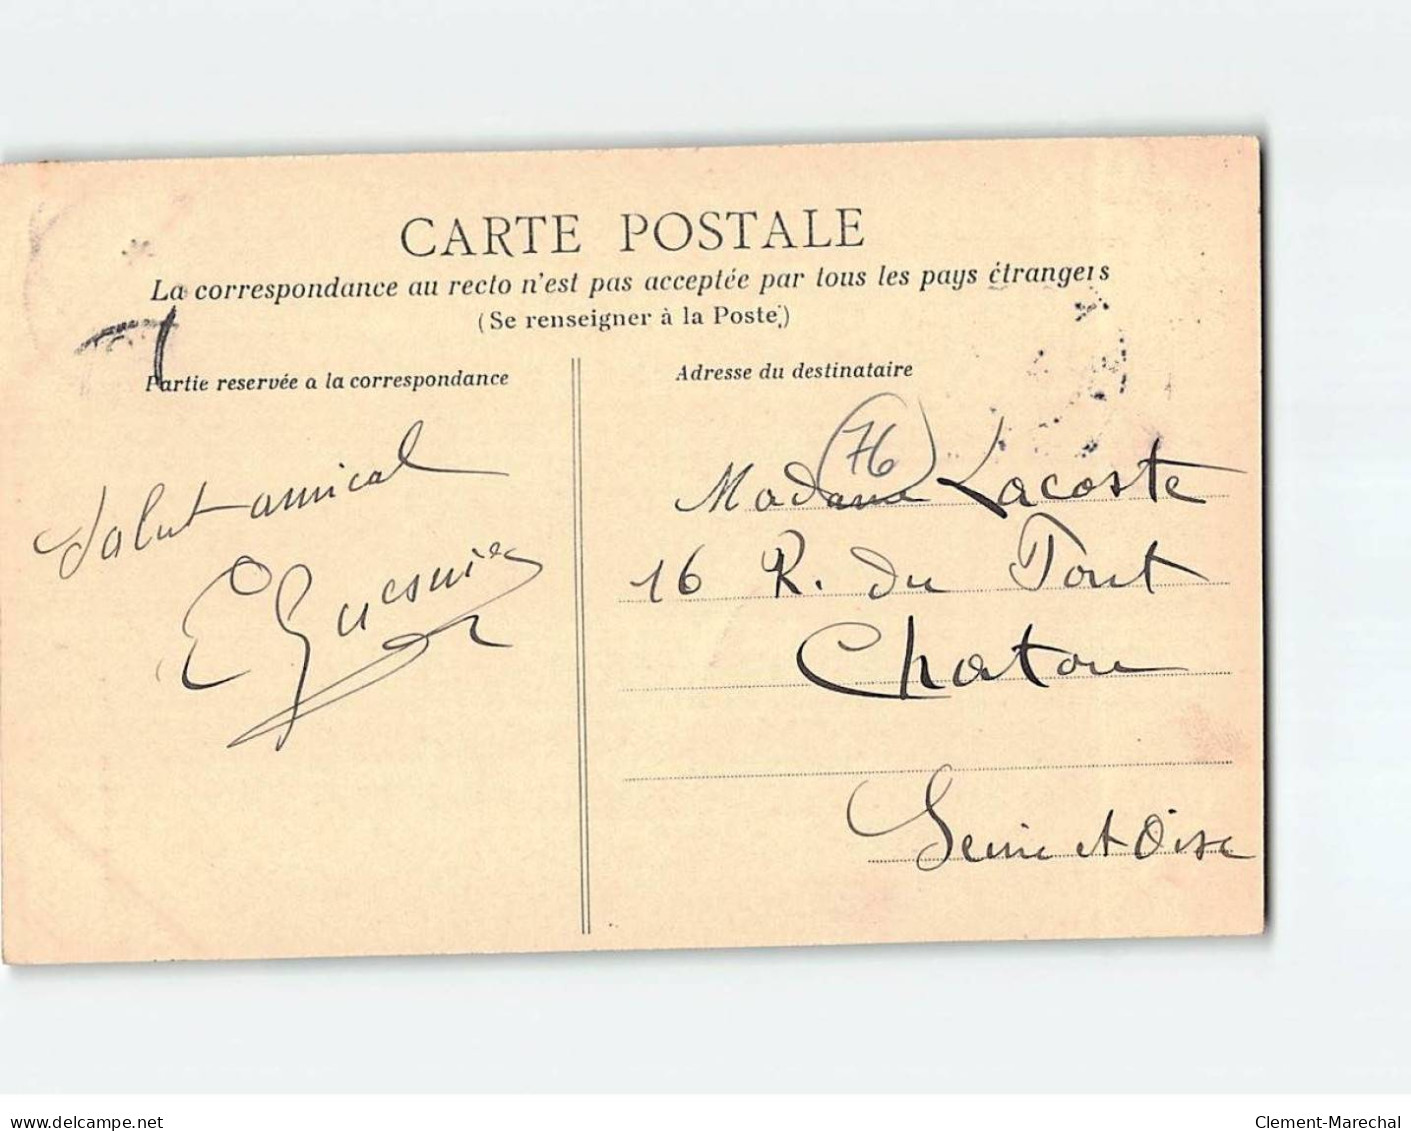 CARTE POSTALE
La correspondance au recto n'est pas acceptée par tous les pays étrangers
(Se renseigner à la Poste.)
Partie reservée a la correspondance
Salut amical
E Guesnier
Adresse du destinataire
76
Madame Lacoste
16 R. du Pont
Chatou
Seine et Oise
www.delcampe.net
Clement-Marechal